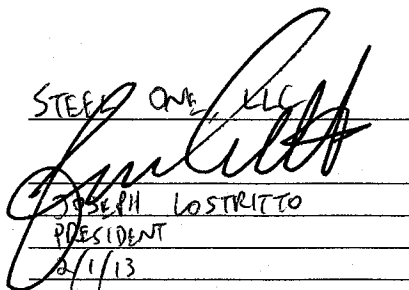 STEEL ONE, LLC
JOSEPH LOSTRITTO
PRESIDENT
2/1/13